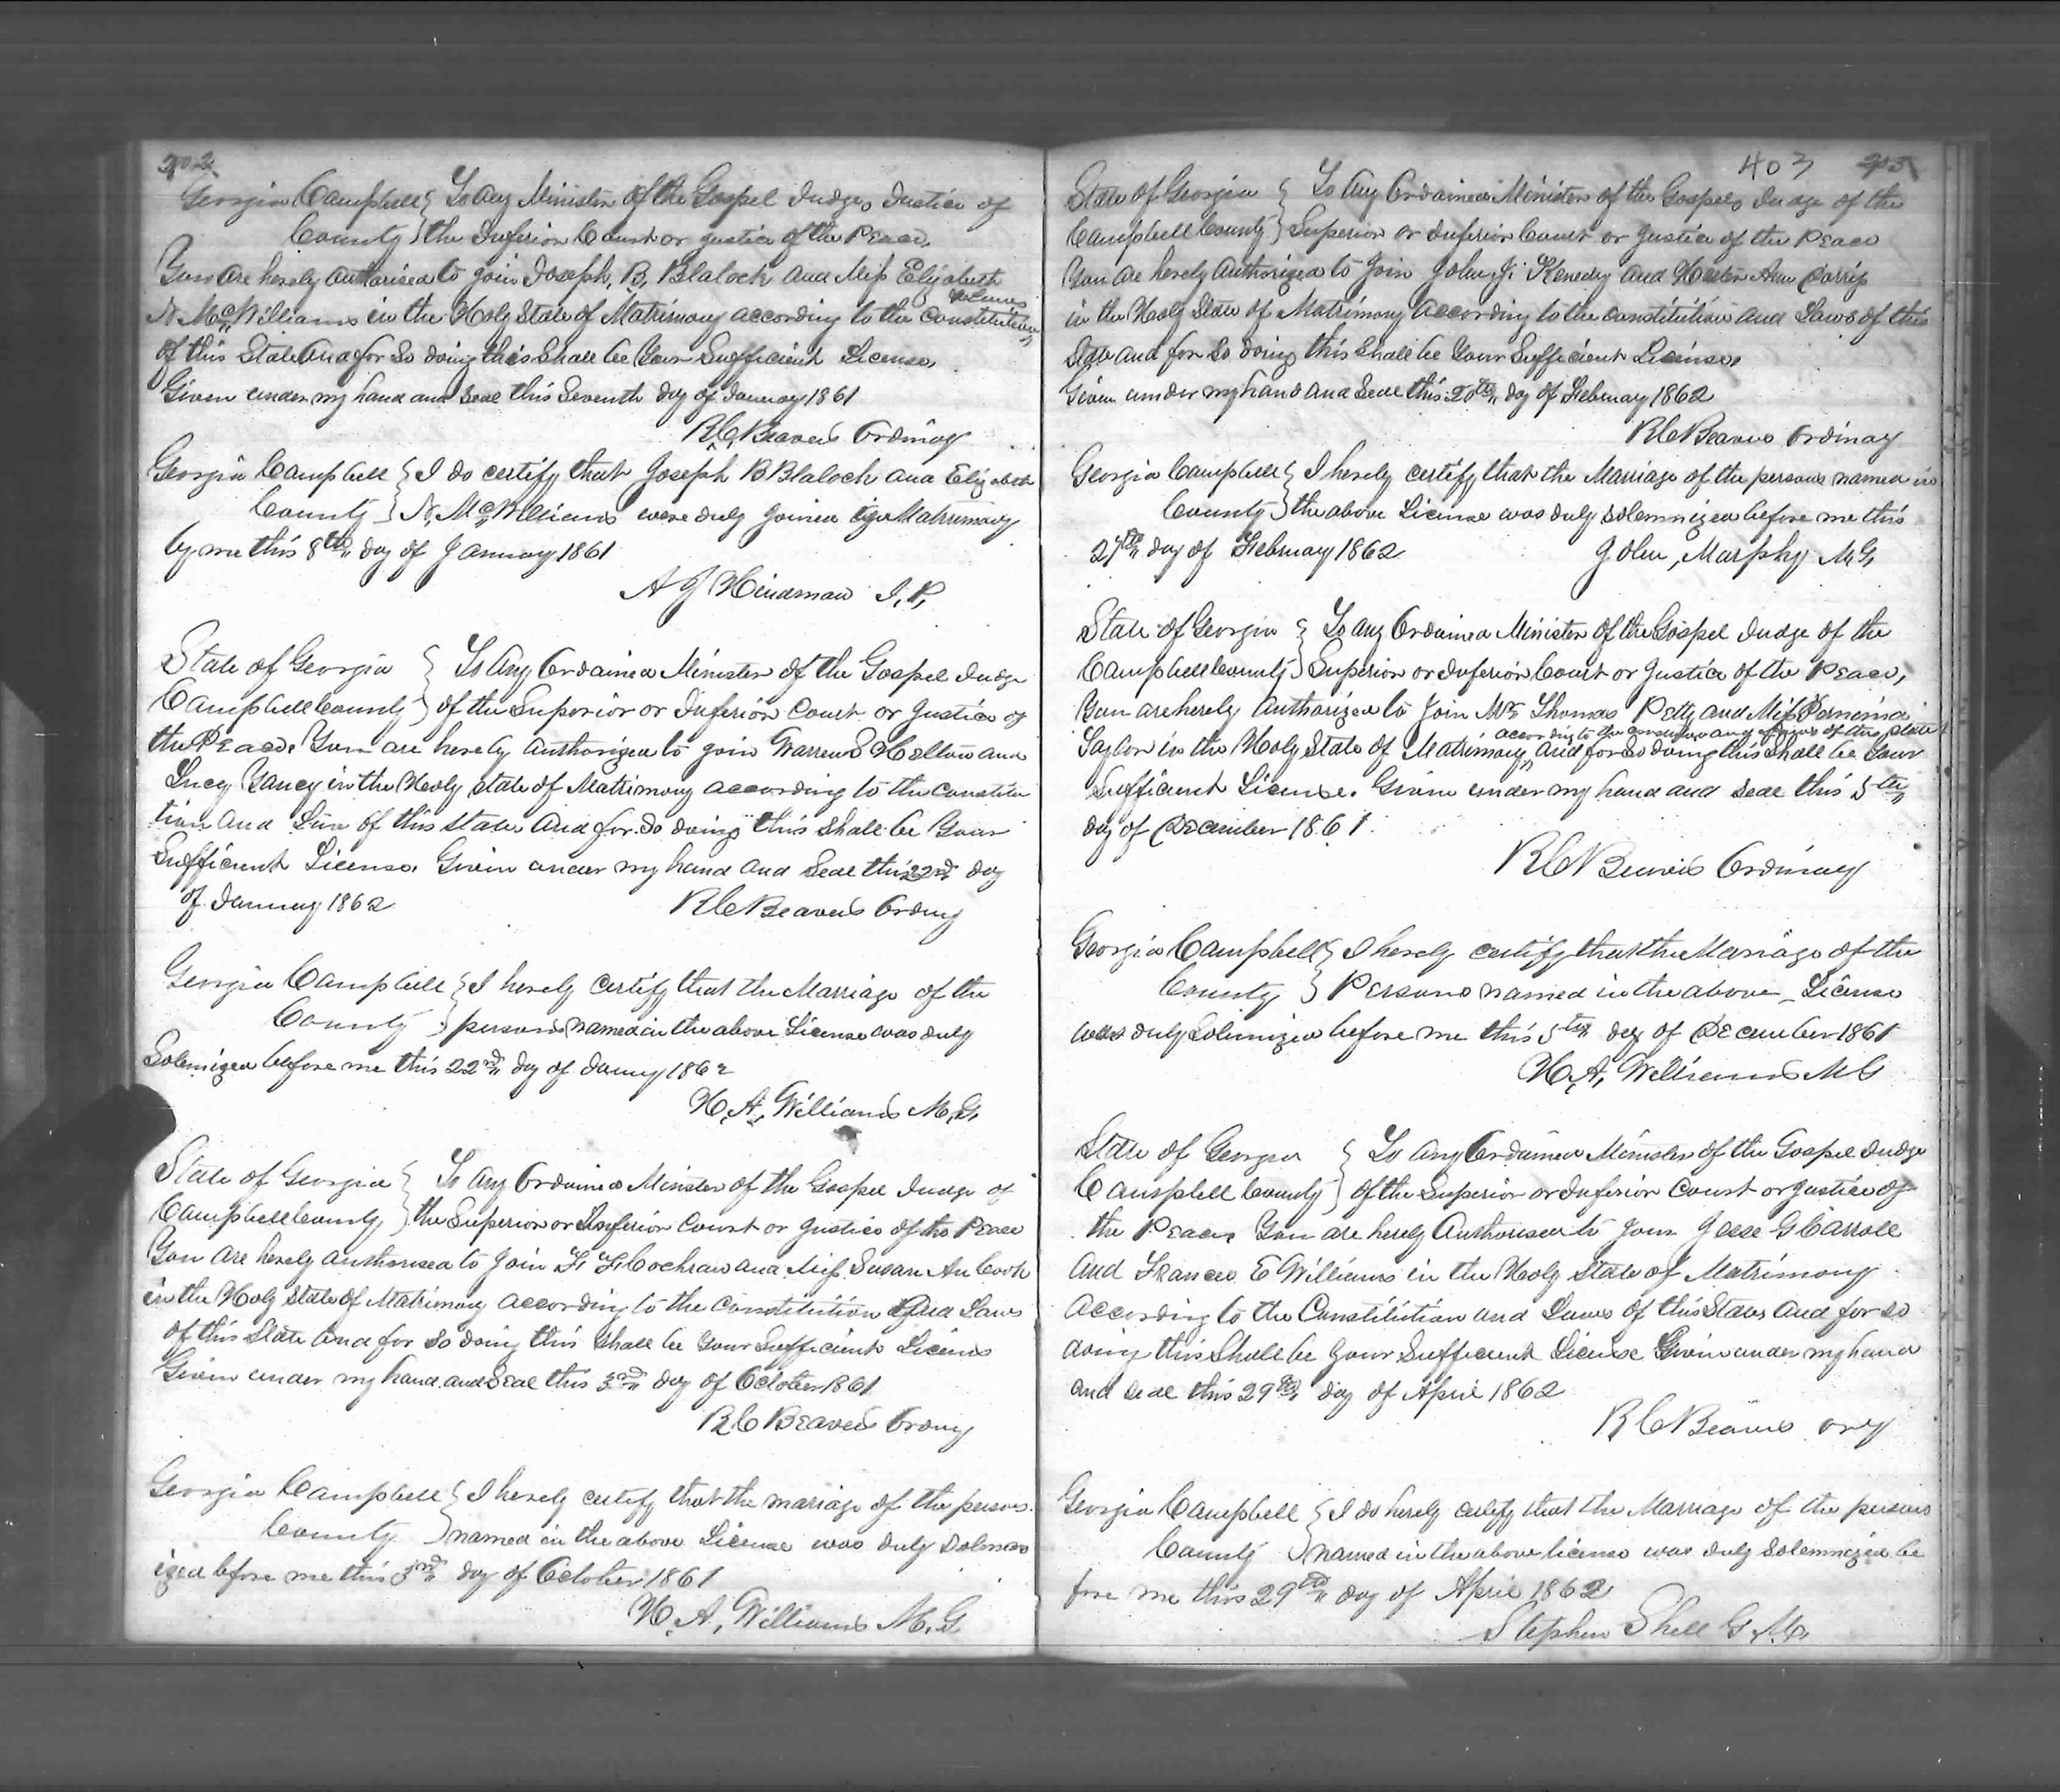 402
Georgia Campbell } To any Minister of the Gospel Judge, Justice of
County } the Inferior Court or justice of the Peace,
You are hereby authorised to join Joseph, B, Blalock and Miss Elizabeth
N. McWilliams in the Holy State of Matrimony according to the Constitution
of this State and for so doing this shall be Your Sufficient License,
Given under my hand and seal this Seventh day of January 1861
R,C, Beavers Ordinary
Georgia Campbell } I do certify that Joseph B Blalock and Elizabeth
County } N, McWilliams were duly joined in Matrimony
by me this 8th day of January 1861
A J Hindsman J, P,
State of Georgia } To Any Ordained Minister of the Gospel Judge
Campbell County } of the Superior or Inferior Court or Justice of
the Peace, You are hereby authorized to join Warren S and
Lucy Yancy in the Holy state of Matrimony according to the constitu
tion and of this state and for so doing this shall be Your
Sufficient License, Given under my hand and Seal this 22nd day
of January 1862 R C Beavers Ordny
Georgia Campbell } I hereby certify that the Marriage of the
County } persons named in the above License was duly
Solemized before me this 22nd day of Janury 1862
H, A, Williams M, G,
State of Georgia } To Any Ordained Minister of the Gospel Judge of
Campbell County, } the Superior or Inferior Court or Justice of the Peace
You are hereby authorised to join F, F, Cochran and Miss Susan An Cook
in the Holy state of Matrimony according to the constitution and Laws
of this State and for so doing this shall be your Sufficient License
Given under my hand and Seal this 3rd day of October 1861
R C Beavers Ordny
Georgia Campbell } I hereby certify that the mariage of the persons
County } named in the above License was duly Solmn
ized before me this 3rd day of October 1861
H, A, Williams M, G
403
State of Georgia } To Any Ordained Minister of the Gospel, Judge of the
Campbell County } Superior or Inferior Court or Justice of the Peace
You are hereby Authorized to Join John J. Kenedy and Ann
in the Holy State of Matrimony According to the constitution and Laws of this
State and for so doing this shall be Your Sufficient License,
Given under my hand and Seal this 20th day of February 1862
R C Beavers Ordinay
Georgia Campbell } I hereby certify that the Marriage of the persons named in
County } the above License was duly solemnized before me this
27th day of February 1862 John, Murphy M, G,
State of Georgia } To any Ordained Minister of the Gospel Judge of the
Campbell County } Superior or Inferior Court or Justice of the Peace,
You are hereby Authorized to Join Mr Thomas Petty and Miss
according to the and of this State
Taylor in the Holy State of Matrimony, and for so doing this shall be Your
Sufficient License. Given under my hand and seal this 5th
day of December 1861.
R C Beavers Ordinary
Georgia Campbell } I hereby certify that the Marriage of the
County } Persons named in the above License
was duly Solimized before me this 5th day of December 1861
H, A, Williams M G
State of Georgia } To Any Ordained Minister of the Gospel Judge
Campbell County } of the Superior or Inferior Court or Justice of
the Peace, You are hereby Authorised to Join Jesse G Carroll
And Frances E Williams in the Holy State of Matrimony
According to the Constitution and Laws of this State and for so
doing this Shall be Your Sufficient License Given under my hand
and seal this 29th day of April 1862
R C Beavers ory
Georgia Campbell } I do hereby certify that the Marriage of the persons
County } named in the above license was duly Solemnized be
fore me this 29th day of April 1862
Stephen Shell G M,